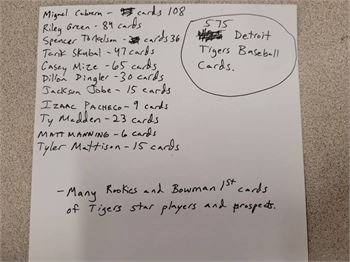 Miguel Cabrera - cards 108
Riley Green - 89 cards
Spencer Torkelson - cards 36
Tarik Skubal - 47 cards
Casey Mize - 65 cards
Dillon Dingler - 30 cards
Jackson Jobe - 15 cards
IZAAC PACHECO - 9 cards
Ty Madden - 23 cards
MATT MANNING - 6 cards
Tyler Mattison - 15 cards
575
Detroit
Tigers Baseball
Cards.
- Many Rookies and Bowman 1st cards
of Tigers star players and prospects.